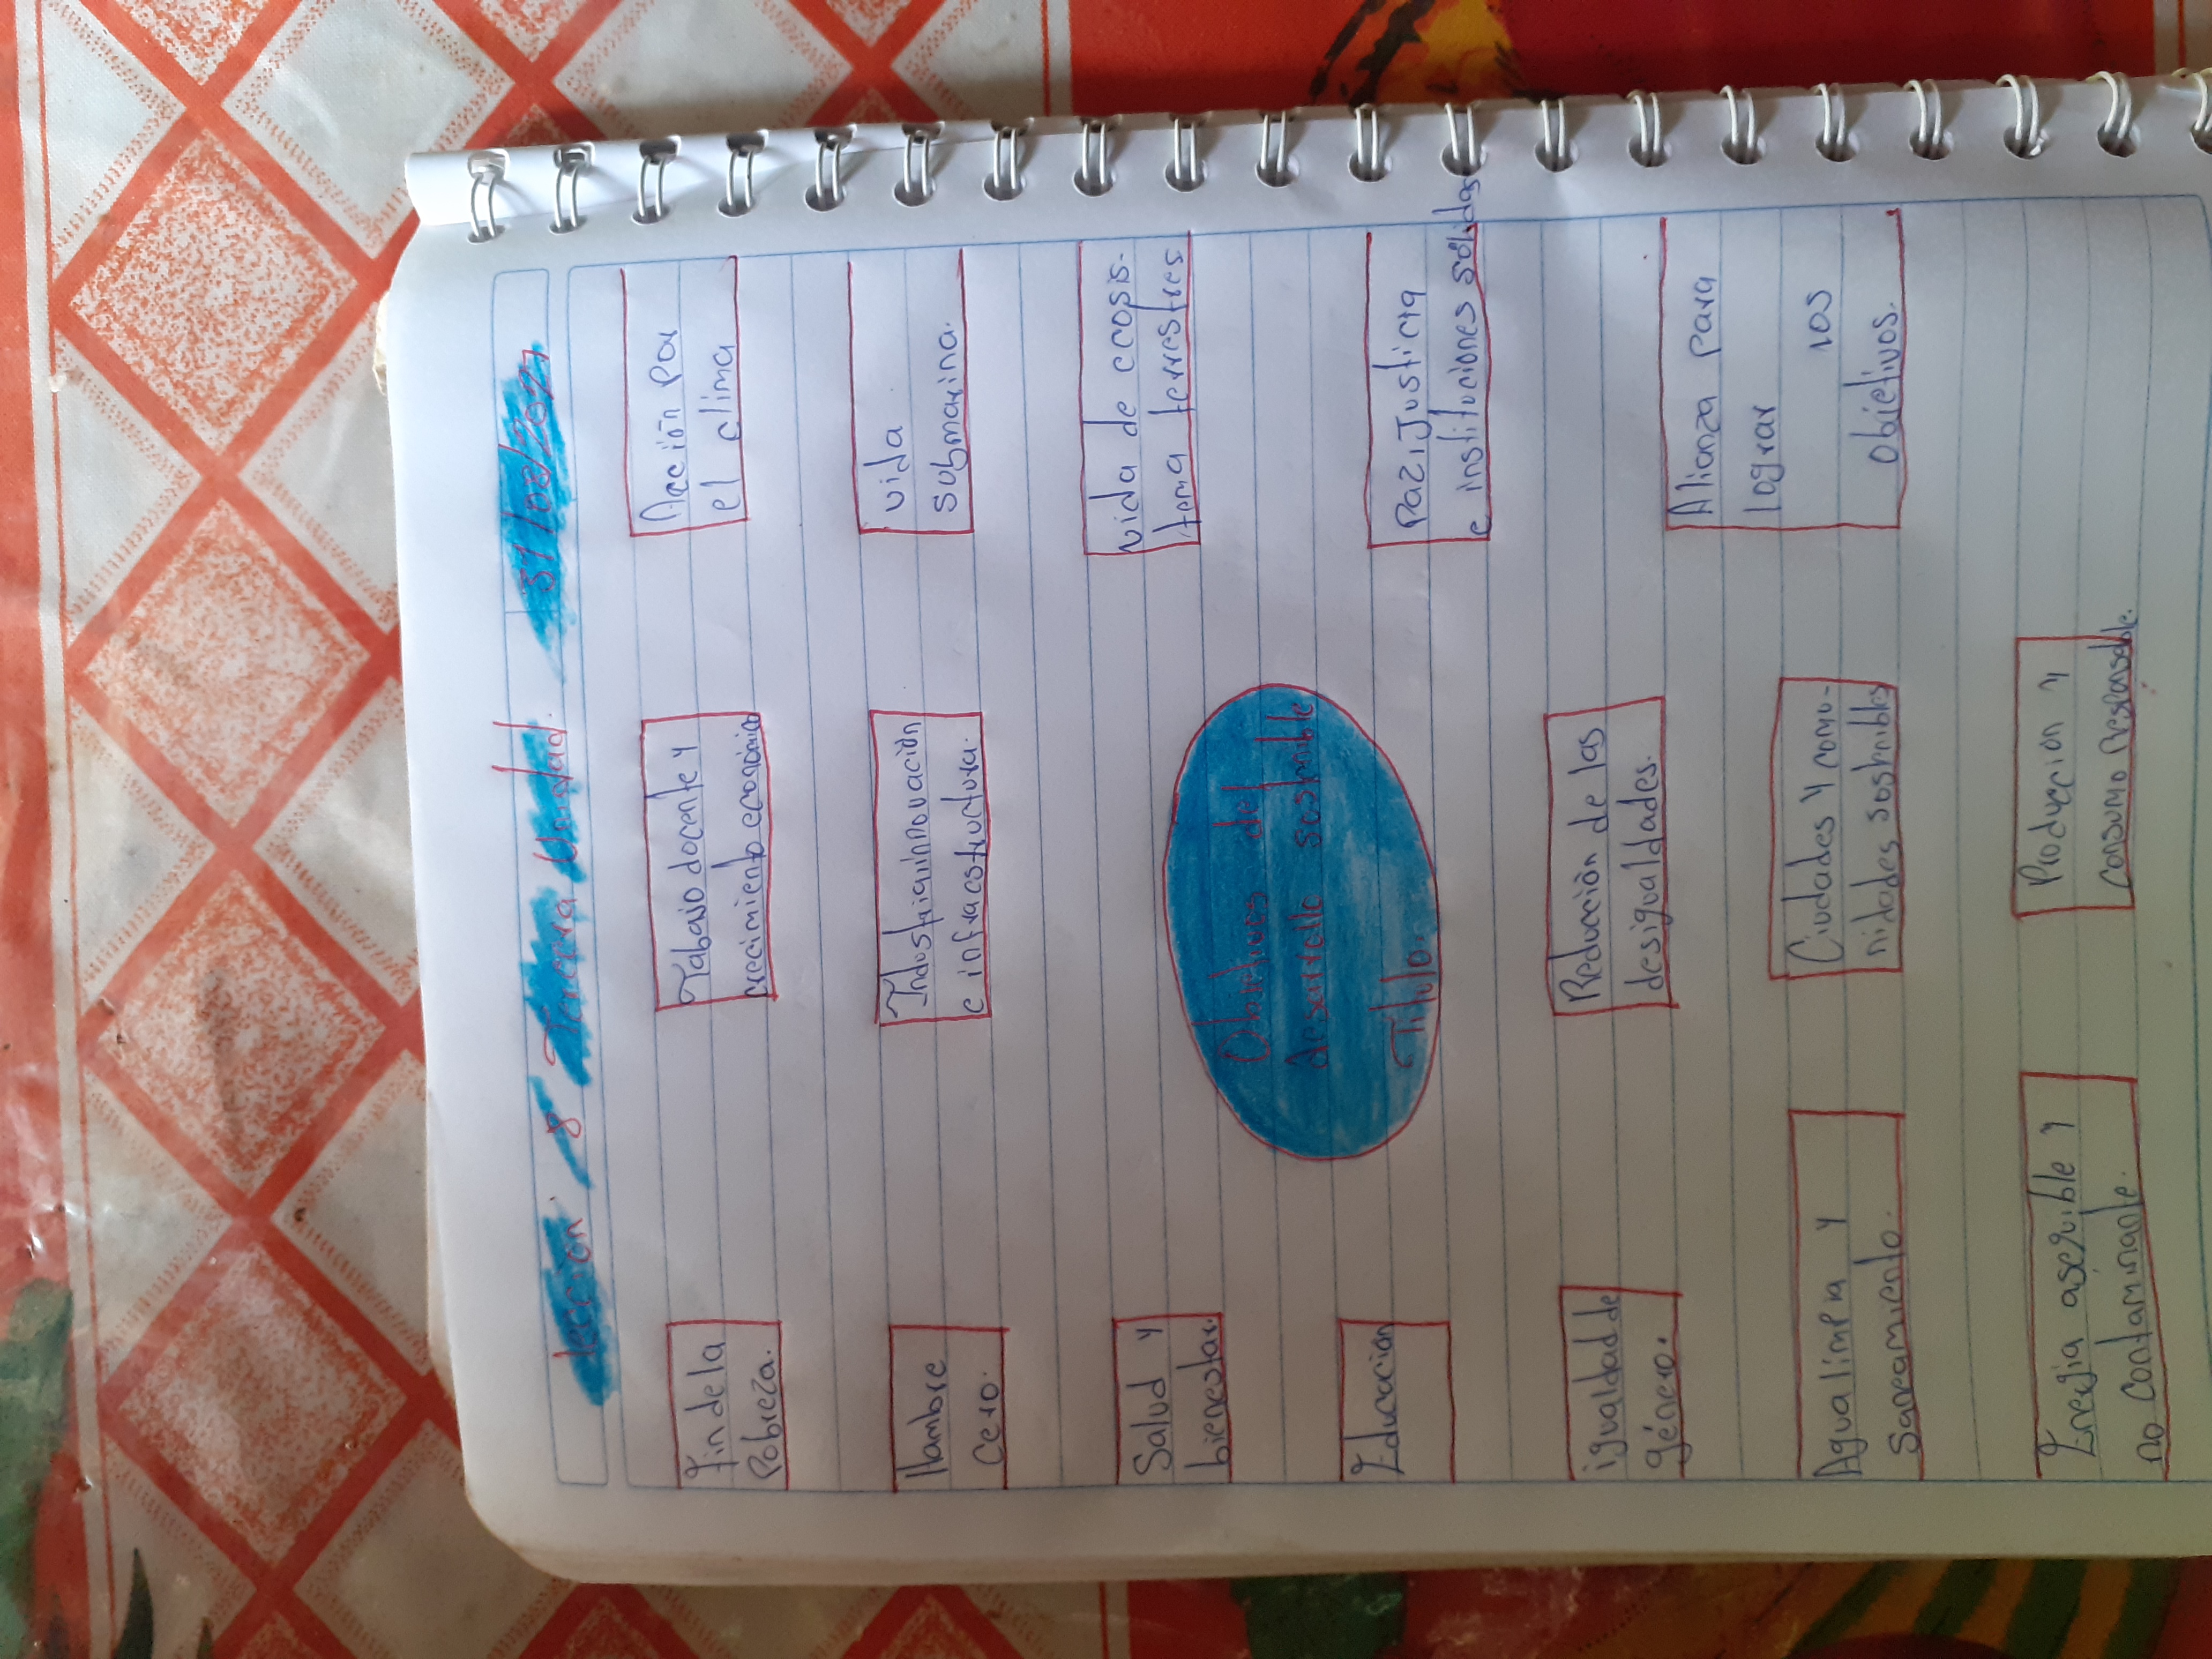 lección 8 Tercera Unidad. 31/08/2021
Fin de la
Pobreza.
Hambre
Cero.
Salud y
bienestar.
Educación
igualdad de
género.
Agua limpia y
Saneamiento.
Energía aserquible y
no contaminante.
Tabajo docente y
crecimiento económico
Industria, innovación
e infraestructura.
Objetivos del
desarrollo sostenible
Titulo.
Reducción de las
desigualdades.
Ciudades y comu-
nidades sostenibles
Producción y
consumo responsable.
Acción por
el clima
vida
submarina.
vida de ecosis-
tema terrestres
Paz, Justicia
e instituciones sólidas
Alianza para
lograr
los
Objetivos.